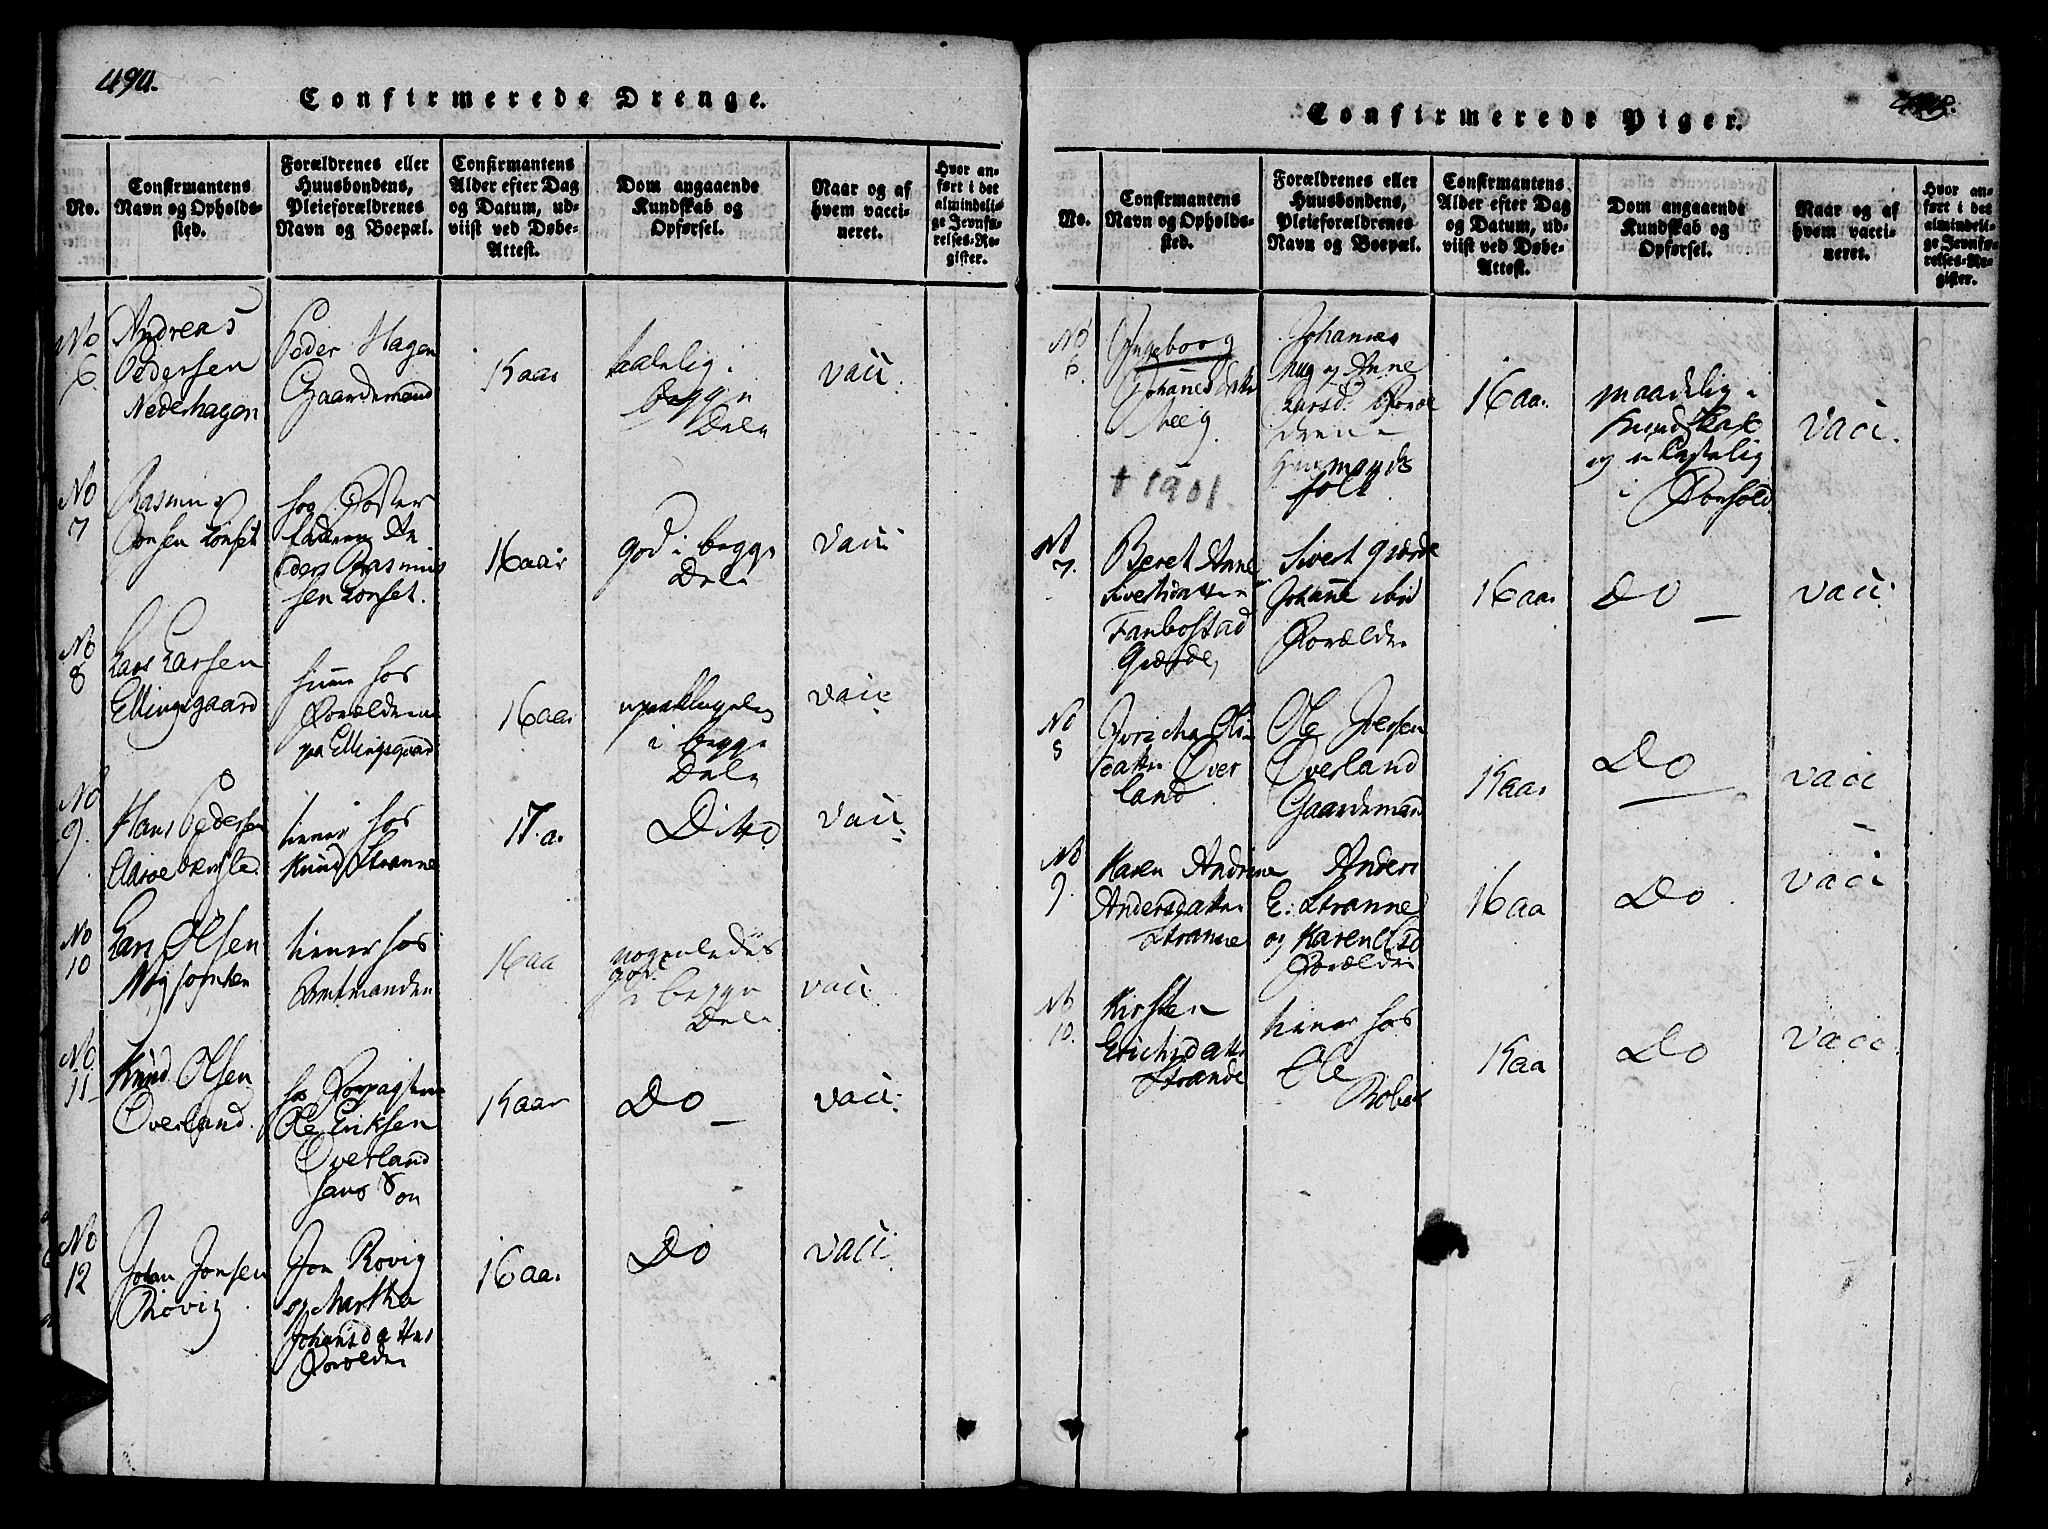 494.
Confirmerede Drenge.
No.
Confirmantens
Navn og Opholds-
sted.
Forældrenes eller
Huusbondens,
Pleieforældrenes
Navn og Boepæl.
Confirmantens
Alder efter Dag
og Datum, ud-
viist ved Døbe-
Attest.
Dom angaaende
Kundskab og
Opførsel.
Naar og af
hvem vacci-
neret.
Hvor an-
ført i det
almindeli-
ge Jevnfø-
relses-Re-
gister.
No
6
Andreas
Pedersen
Nederhagen
Peder Hagen
Gaardemand
15 aar
taalelig i
begge
Dele
vacc.
No
7
Rasmus
Jonsen Lonset
hos Foster
faderen An
ders Rasmus
sen Lonset.
16 aar
god i begge
Dele
vacc
No
8
Lars Larsen
Ellingsgaard
hiemme hos
Forældrene
paa Ellingsgaard
16 aar
upaaklagelig
i begge
Dele
vacc
No
9.
Hans Pedersen
tiener hos
Knud Stranne
17. a.
Dito
vacc.
No
10
Lars Olsen
tiener hos
Amtmanden
16 aa
nogenledes
god
i begge
Dele
vacc
No
11
Knud Olsen
Overland.
hos
Ole Eriksen
Overland
hans Søn
15 aar
Do
vacc.
No
12
Johan Jonsen
Rovig
Jon Rovig
og Martha
Johansdatter
Forældre
16 aa.
Do
vacc.
Confirmerede Piger.
No.
Confirmantens
Navn og Opholds-
sted.
Forældrenes eller
Huusbondens,
Pleieforældrenes
Navn og Boepæl.
Confirmantens
Alder efter Dag
og Datum, ud-
viist ved Døbe-
Attest.
Dom angaaende
Kundskab og
Opførsel.
Naar og af
hvem vacci-
neret.
Hvor an-
ført i det
almindeli-
ge Jevnfø-
relses-Re-
gister.
No
6.
Ingeborg
Johannesdatter
† 1901.
Johannes
og Anne
Larsd. Foræl
drene
Huusmands
folk
16 aa.
maadelig i
Kundskab
og ulastelig
i Forhold
vacc.
No
7.
Beret Anne
Sivertsdatter
Fanbostad
Giærde,
Sivert Giærde
Johanne ibid
Forældre
16 aa.
Do
vacc.
No
8
Giricha Ols
datter Over
land
Ole Iversen
Overland
Gaardemand
15 aa.
Do
vacc
No
9.
Karen Andrine
Andersdatter
Stranne
Anders
E: Stranne
og Karen Olsd
Forældre
16 aa
Do
vacc
No
10.
Kirsten
Erichsdatter
Strande
tiener hos
Ole
15 aa
Do
vacc.